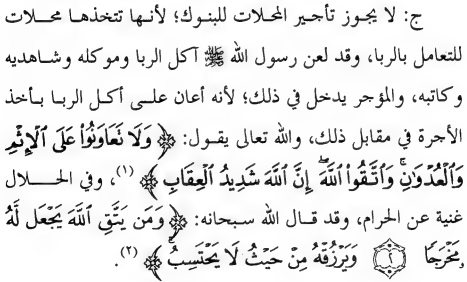 ج: لا يجوز تأجير المحلات للبنوك؛ لأنها تتخذها محلات
للتعامل بالربا، وقد لعن رسول الله ﷺ آكل الربا وموكله وشاهديه
وكاتبه، والمؤجر يدخل في ذلك؛ لأنه أعان على أكل الربا بأخذ
الأجرة في مقابل ذلك، والله تعالى يقول: ﴿وَلَا تَعَاوَنُوا۟ عَلَى ٱلْإِثْمِ
وَٱلْعُدْوَٰنِۚ وَٱتَّقُوا۟ ٱللَّهَۖ إِنَّ ٱللَّهَ شَدِيدُ ٱلْعِقَابِ﴾ (١)، وفي الحلال
غنية عن الحرام، وقد قال الله سبحانه: ﴿وَمَن يَتَّقِ ٱللَّهَ يَجْعَل لَّهُۥ
مَخْرَجًا ۝٢ وَيَرْزُقْهُ مِنْ حَيْثُ لَا يَحْتَسِبُۚ﴾ (٢).